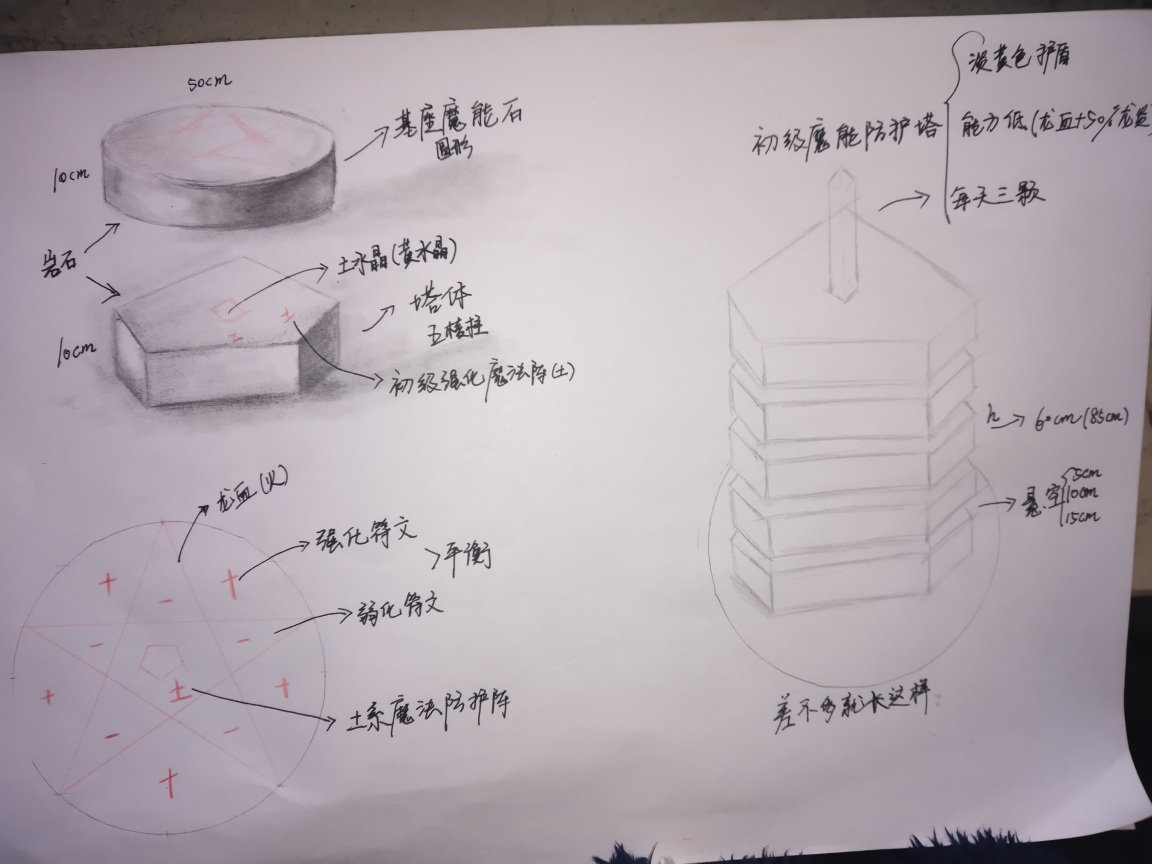 50cm
10cm
基座魔能石
圆形
岩石
土水晶(黄水晶)
塔体
五棱柱
10cm
初级强化魔法阵(土)
龙血(火)
强化符文
平衡
弱化符文
土系魔法防护阵
+
+
-
-
-
+
土
+
-
-
+
初级魔能防护塔
淡黄色护盾
能力低(龙血+50%
每天三颗
h
60cm(85cm)
悬空
5cm
10cm
15cm
差不多就长这样